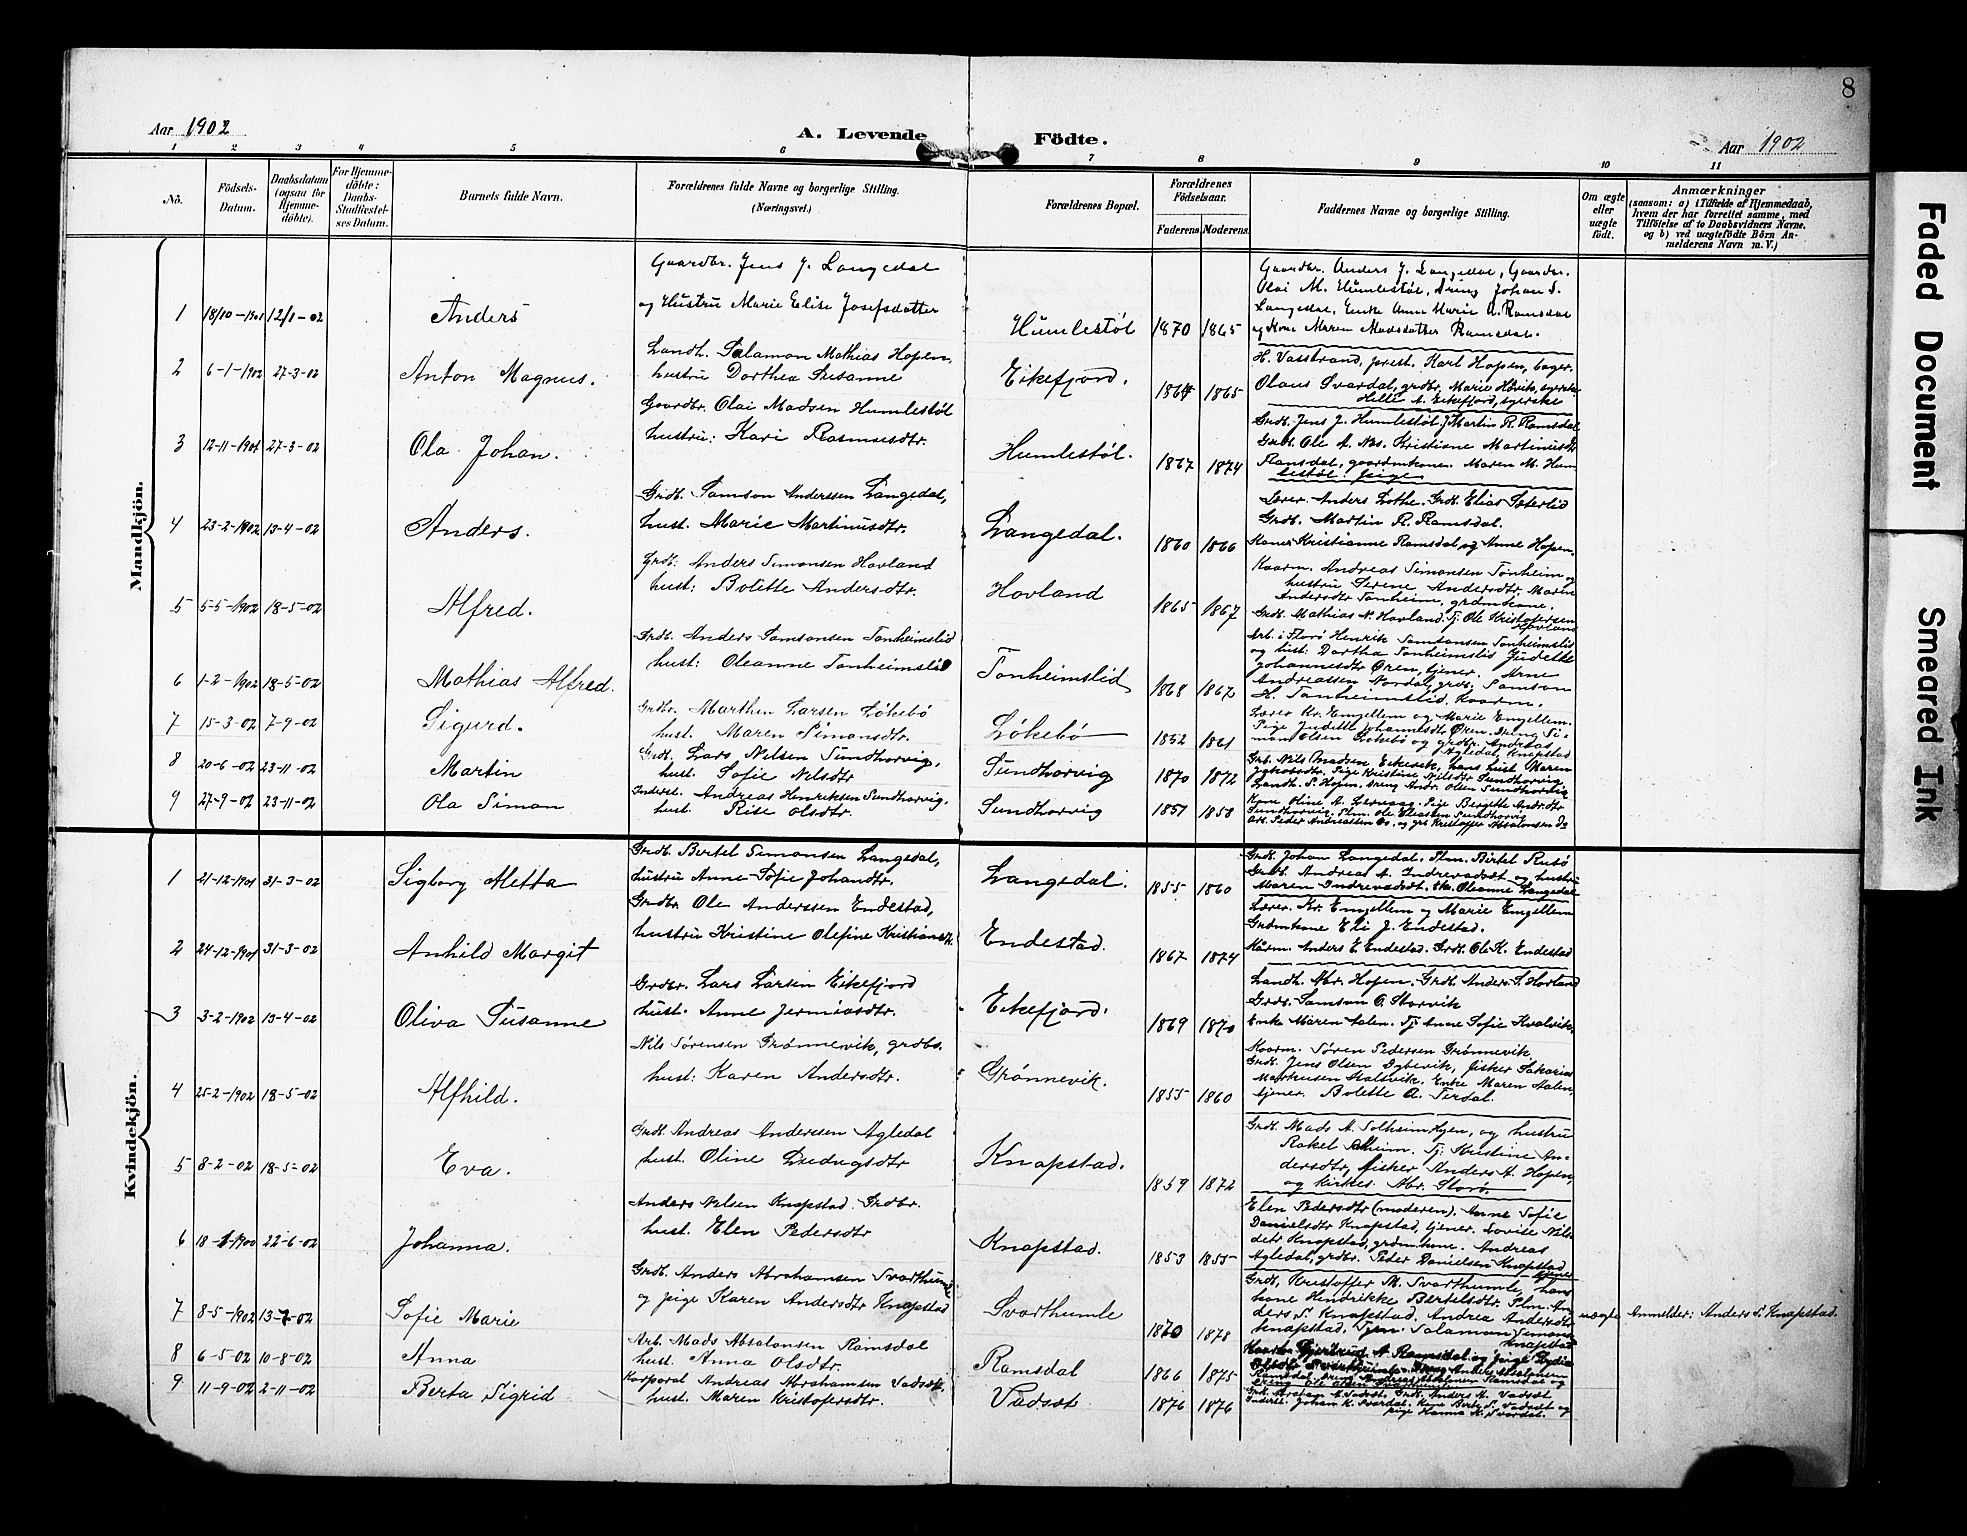 8
Aar 1902
A. Levende Fødte.
Aar 1902
1 2 3 4 5 6 7 8 9 10 11
No.
Födsels-Datum.
Daabsdatum (ogsaa for Hjemme-döbte).
For Hjemme-döbte: Daabs-Stadfæstelses Datum.
Barnets fulde Navn.
Forældrenes fulde Navne og borgerlige Stilling. (Næringsvei.)
Forældrenes Bopæl.
Forældrenes Födselsaar.
Faderens Moderens
Faddernes Navne og borgerlige Stilling.
Om ægte eller uægte födt.
Anmærkninger
(saasom: a) i Tilfælde af Hjemmedaab, hvem der har forrettet samme, med Tilföielse af to Daabsvidners Navne. og b) ved uægtefödte Börn Anmelderens Navn m. V.)
Mandkjön.
1 18/10-1901 12/1-02 Anders Gaardbr. Jens J. Langedal og Hustru Marie Elise Josefsdatter Humlestøl 1870 1865 Gaardbr. Anders J. Langedal, Gaardbr. Olai M. Humlestøl, Dreng Johan S. Langedal, Enke Anne Marie A. Ramsdal og Kone Maren Madsdatter Ramsdal.
2 6-1-1902 27-3-02 Anton Magnus. Landh. Salamon Mathias Hopen, hustru Dorthea Susanne Eikefjord. 1864 1865 H. Vasstrand, prest. Karl Hopen, bager. Olaus Svardal, grdbr. Marie Høvik, syerske Helle A. Eikefjord, syerske
3 12-11-1901 27-3-02 Ola Johan. Gaardbr. Olai Madsen Humlestøl hustru: Kari Rasmusdtr. Humlestøl. 1867 1874 Grdb. Jens J. Humlestøl. Martin R. Ramsdal Grdb. Ole A. Nes. Kristiane Martinusdtr Ramsdal, gaardmkone. Maren M. Humlestøl. Pige
4 23-2-1902 13-4-02 Anders. Grdb. Samson Anderssen Langedal, hust. Marie Martinusdtr. Langedal. 1860 1866 Lærer Anders Lothe. Grdb. Elias Sæterlid Grdb. Martin R. Ramsdal. Koner Kristianne Ramsdal og Anne Hopen.
5 5-5-1902 18-5-02 Alfred. Grdb: Anders Simonsen Hovland hust: Bolette Andersdtr. Hovland 1865 1867 Kaarm. Andreas Simonsen Tonheim og hustru Serene Andersdtr. Maren Andersdtr Tonheim, grdmkone. Grdb. Mathias N. Hovland. Tj. Ole Kristofersen Hovland
6 1-2-1902 18-5-02 Mathias Alfred. Grdb. Anders Samsonsen Tonheimslid hust: Oleanne Tonheimslid Tonheimslid 1868 1867 Arb. i Florø Henrik Samsonsen Tonheimslid og hust: Dortha Tonheimslid Judette Johannesdtr Øren, tjener. Arne Andreassen Nordal, grdb. Samson H. Tonheimslid, Kaarm.
7 15-3-02 7-9-02 Sigurd. Grdbr. Marthin Larsen Løkebø hust. Maren Simonsdtr. Løkebø 1852 1861 Lærer Kr. Emgellem og Marie Emgellem. Pige Judette Johannesdtr Øren. Dreng Simon Olsen Løkebø og grdbr. Andreas Agledal, Knapstad
8 20-6-02 23-11-02 Martin Grdb. Lars Nilsen Sundhorvig, hust. Sofie Nilsdtr Sundhorvig 1870 1872 Grb. Nils Madsen Eikevik, hans hust Maren Jakobsdtr. Pige Kristine Nilsdtr Sundhorvig Landh. S. Hopen, dreng Andr. Olsen Sundhorvig
9 27-9-02 23-11-02 Ola Simon Inderst. Andreas Henriksen Sundhorvig, hust. Rise Olsdtr. Sundhorvig 1851 1858 Kone Oline A. Lervaag. Pige Bergette Andr.dtr Sundhorvig. Plm. Ole Eliassen Sundhorvig Arb. Peder Andreassen Os, og grb Kristoffer Absalonsen do
Kvindekjön.
1 21-12-1901 31-3-02 Sigborg Metta Grdb. Bertel Simonsen Langedal, hustru Anne Sofie Johandtr. Langedal. 1855 1860 Grdb. Johan Langedal. Plm. Birtel Rusø Grdb. Andreas A. Indrevadsdt og hustru Maren Indrevadsdt. Enk. Oleanne Langedal
2 24-12-1901 31-3-02 Anhild Margit Grdbr. Ole Anderssen Endestad, hustru Kristine Olefine Kristiansdt. Endestad. 1867 1874 Lærer. Kr. Emgellem og Marie Emgellem Grdmkone Eli J. Endestad. Kårm. Anders E Endestad. Grdb. Ole K. Endestad
3 3-2-1902 13-4-02 Oliva Susanne Grdbr. Lars Larsen Eikefjord hust. Anne Jermiasdtr. Eikefjord. 1869 1870 Landh. Abr. Hopen. Grdb. Anders S. Hovland Grdb. Samson O. Storvik Enke Maren Aalen. Tj. Anne Sofie Kvalvik.
4 25-2-1902 18-5-02 Alfhild. Nils Sørensen Grønnevik, grdbs. hust: Karen Andersdtr. Grønnevik. 1855 1860 Kaarm. Søren Pedersen Grønnevik, Grdb. Jens Olsen Dybevik, fisker Sakarias Markusen Stalsvik. Enke Maren Aalen, tjener. Bolette A. Terdal.
5 8-2-02 18-5-02 Eva. Grdb. Andreas Anderssen Agledal hust. Oline Ludvigsdtr Knapstad. 1859 1872 Grdb. Mads A. Solheim Hyen, og hustru Rakel Solheim. Tj. Kristine Andersdtr, fisker Anders A. Hopen, og kirkes. Abr. Storø.
6 18-1-1900 22-6-02 Johanna. Anders Nilsen Knapstad. Grdbr. hust. Elen Pedersdtr Knapstad. 1853 1855 Elen Pedersdtr (moderen). Anne Sofie Danielsdtr Knapstad, tjener. Lovise Nilsdotr Knapstad, grdmkone. Andreas Agledal, grdbr. Peder Danielsen Knapstad tjener
7 8-5-1902 13-7-02 Sofie Marie Grdb. Anders Abrahamsen Svarthumle og pige Karen Andersdtr Knapstad Svarthumle 1870 1878 Grdb. Kristoffer M. Svarthumle, hans kone Hendrikke Bertelsdtr. Plm. Anders S. Knapstad. Andrea Andersdtr Knapstad, Tjen. Salamon Simons Knapstad uægte Anmelder: Anders S. Knapstad.
8 6-5-02 10-8-02 Anna Arb. Mads Absalonsen Ramsdal hust. Anna Olsdtr. Ramsdal 1866 1875 A. Ramsdal og pige
9 11-9-02 2-11-02 Berta Sigrid Korporal Andreas Abrahamsen Vadsdt. hust. Maren Kristofersdtr. Vadsdt 1876 1876 Grb. Abraham A. Vadsdt. Grdb. Anders A. Vadsdt Inderst. Johan K. Svardal. Kone Berte S. Vadsdt og pige Hanna K. Svardal.
Faded Document
Smeared Ink